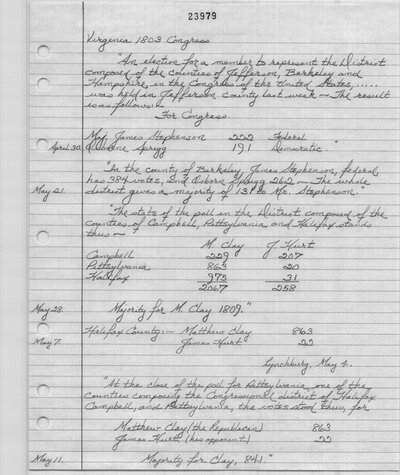 23979
Virginia 1803 Congress
"An election for a member to represent the District
composed of the counties of Jefferson, Berkeley and
Hampshire, in the Congress of the United States, .....
was held in Jefferson county last week — The result
is as follows:—
For Congress.
Maj. James Stephenson 222 Federal
April 30. Osborne Sprigg 191 Democratic."
"In the county of Berkeley James Stephenson, federal,
has 384 votes, and Osborn Sprigg 262 — The whole
May 21. district gives a majority of 131 to Mr. Stephenson."
"The state of the poll in the District composed of the
Counties of Campbell, Pittsylvania and Halifax stands
thus —
M. Clay J. Hurt
Campbell 229 207
Pittsylvania 863 20
Halifax 975 31
2067 258
May 28. Majority for M. Clay 1809."
Halifax County:— Matthew Clay 863
May 7. James Hurt 22
Lynchburg, May 4.
"At the close of the poll for Pittsylvania, one of the
Counties composing the Congressional district of Halifax
Campbell, and Pittsylvania, the votes stood thus, for
Matthew Clay (the Republican) 863
James Hurt (his opponent) 22
May 11. Majority for Clay, 841"